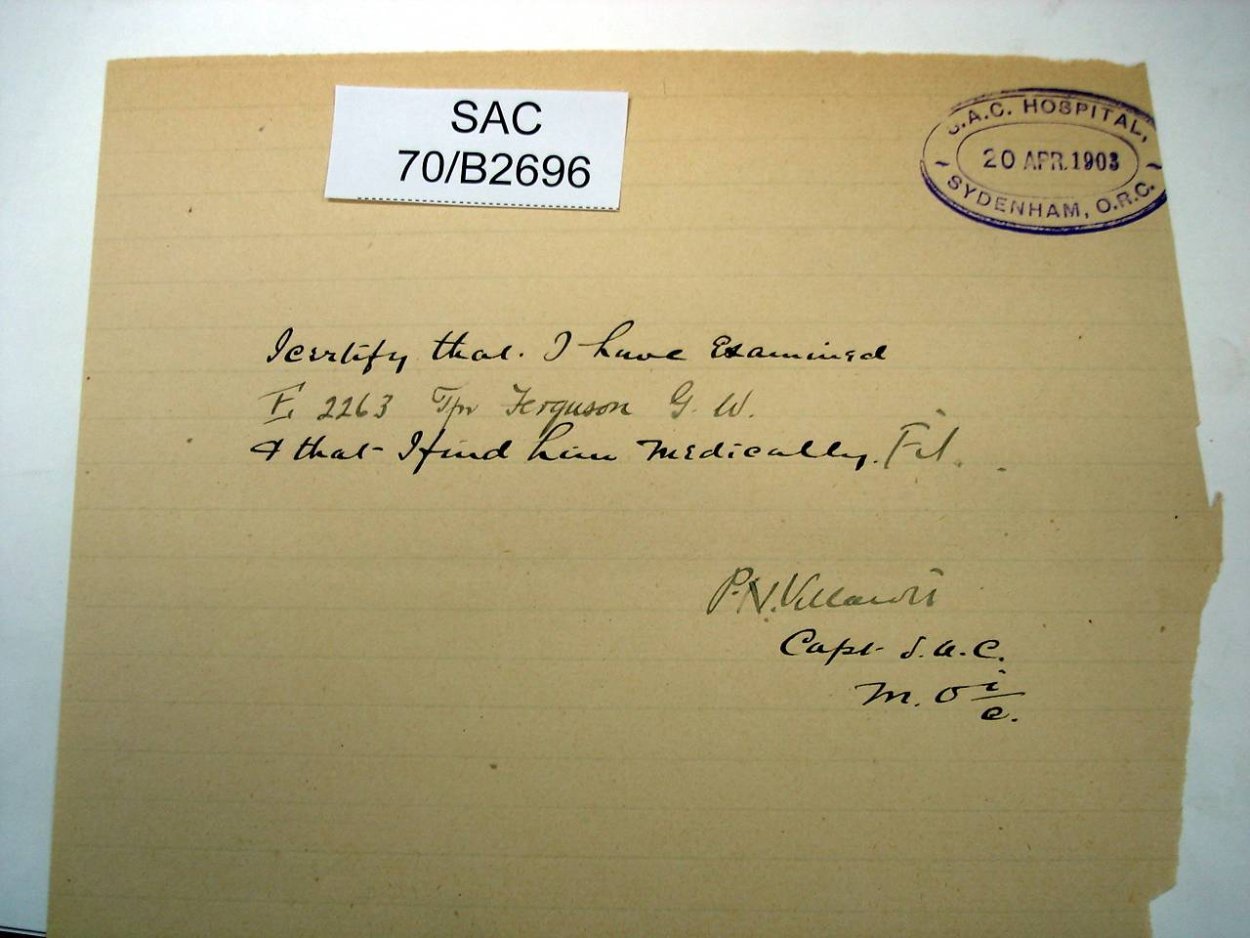 SAC
70/B2696
S.A.C. HOSPITAL,
20 APR. 1903
SYDENHAM, O.R.C.
I certify that. I have Examined
E. 2263 Tpr Ferguson G. W.
& that I find him medically. Fit.
Capt S.A.C.
M. O i/c.